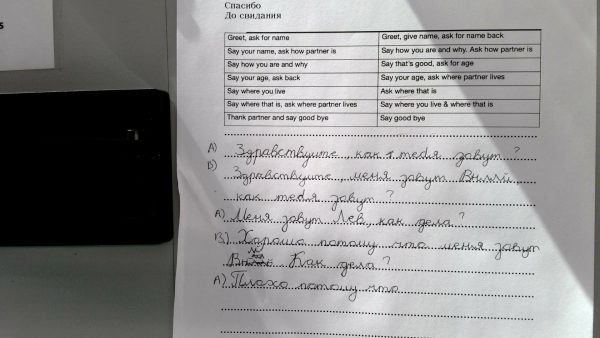 s
Спасибо
До свидания
Greet, ask for name | Greet, give name, ask for name back
Say your name, ask how partner is | Say how you are and why. Ask how partner is
Say how you are and why | Say that's good, ask for age
Say your age, ask back | Say your age, ask where partner lives
Say where you live | Ask where that is
Say where that is, ask where partner lives | Say where you live & where that is
Thank partner and say good bye | Say good bye
А) Здравствуите, как тебя завут?
Здравствуите, меня завут
как тебя завут?
А) Меня завут Лев, как дела?
В) Хорошо потому что меня завут
Как дела?
А) Плохо потому что